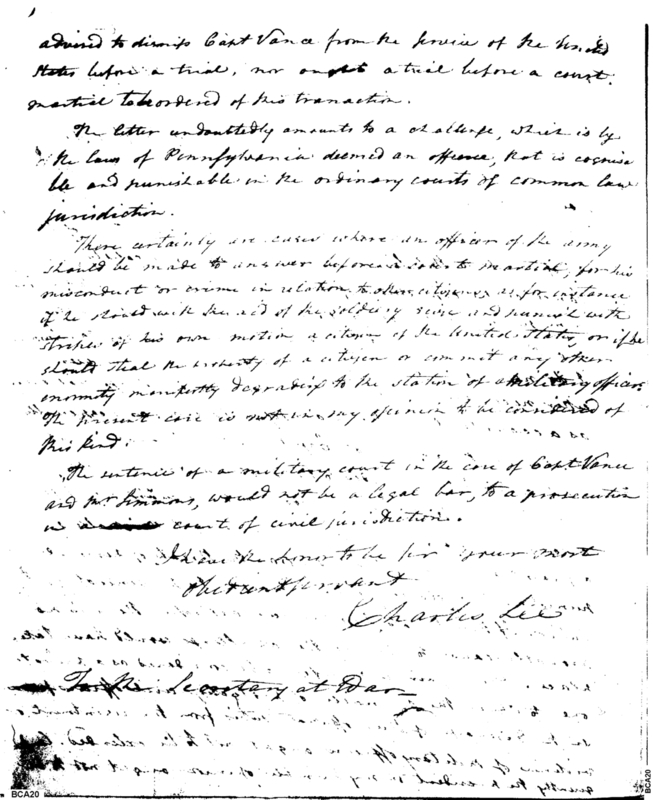 advised to dismiss Capt Vance from the service of the United
States before a trial, nor ought a trial before a court
martial to be ordered of this transaction.
The letter undoubtedly amounts to a challenge, which is by
the laws of Pennsylvania deemed an offence, that is cognisa
ble and punishable in the ordinary courts of common law
jurisdiction.
There certainly are cases where an officer of the army
should be made to answer before a court martial, for his
misconduct or crime in relation to other citizens, as for instance
if he should with the aid of the soldiery seize and punish with
stripes of his own motion a citizen of the United States, or if he
should steal the property of a citizen or commit any other
enormity manifestly degrading to the station of a military officer.
The present case is not in my opinion to be considered of
this kind.
The sentence of a military court in the case of Capt Vance
and Mr Simmons, would not be a legal bar, to a prosecution
in a court of civil jurisdiction.
I have the honor to be sir your most
obedient servant
Charles Lee
The Secretary at War
BCA20
BCA20